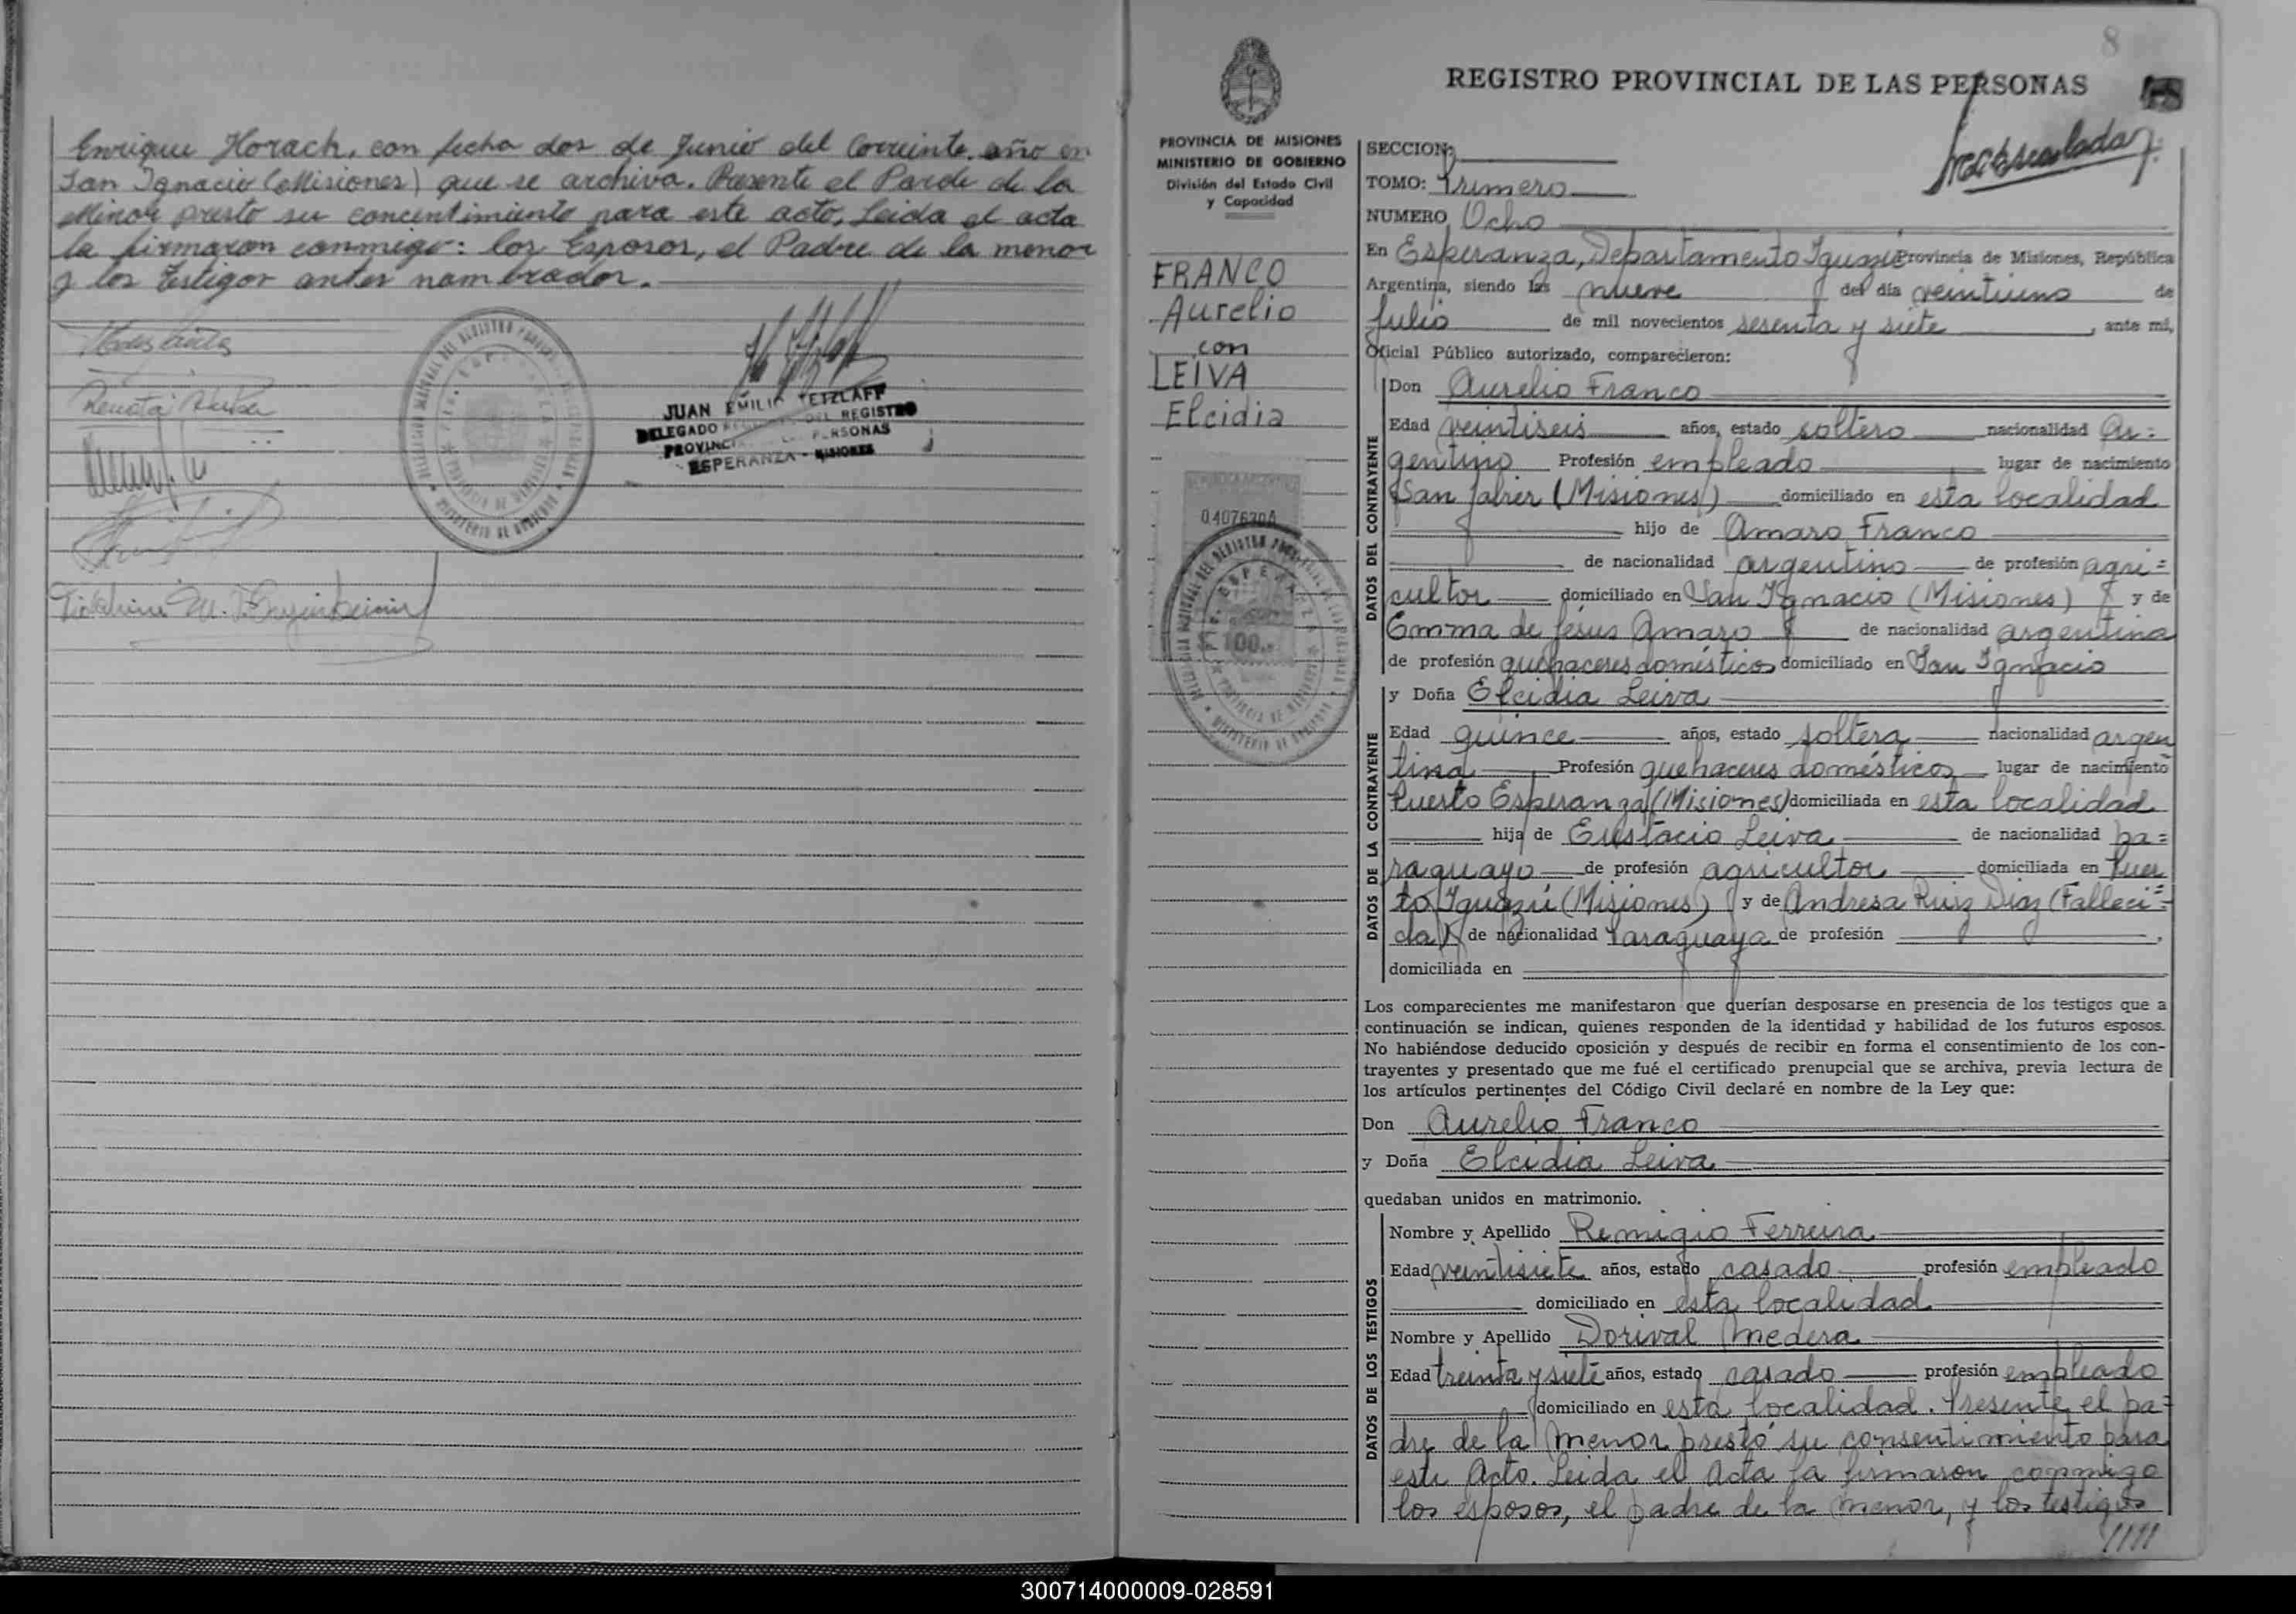 Enrique Horach, con fecha dos de Junio del Corriente año en
San Ignacio (Misiones) que se archiva. Presente el Parde de la
Minor presto su concentimiento para este acto, Leida el acta
la firmaron conmigo: los Esposos, el Padre de la menor
y los Testigos antes nombrados.
JUAN EMILIO TETZLAFF
DELEGADO DEL REGISTRO
PROVINCIAL DE LAS PERSONAS
ESPERANZA - MISIONES
8
REGISTRO PROVINCIAL DE LAS PERSONAS
PROVINCIA DE MISIONES
MINISTERIO DE GOBIERNO
División del Estado Civil
y Capacidad
FRANCO
Aurelio
con
LEIVA
Elcidia
REPUBLICA ARGENTINA
0407630A
100
SECCION:
TOMO: Primero
NUMERO Ocho
En Esperanza, Departamento Iguazú Provincia de Misiones, República
Argentina, siendo las nueve del día veintiuno de
Julio de mil novecientos sesenta y siete, ante mí,
Oficial Público autorizado, comparecieron:
DATOS DEL CONTRAYENTE
Don Aurelio Franco
Edad veintiseis años, estado soltero nacionalidad Ar=
gentino Profesión empleado lugar de nacimiento
San Javier (Misiones) domiciliado en esta localidad
hijo de Amaro Franco
de nacionalidad argentino de profesión agri=
cultor domiciliado en San Ignacio (Misiones) y de
Emma de Jesús Amaro de nacionalidad argentina
de profesión quehaceres domésticos domiciliado en San Ignacio
DATOS DE LA CONTRAYENTE
y Doña Elcidia Leiva
Edad quince años, estado soltera nacionalidad argen
tina Profesión quehaceres domésticos lugar de nacimiento
Puerto Esperanza (Misiones) domiciliada en esta localidad
hija de Eustacio Leiva de nacionalidad pa=
raguayo de profesión agricultor domiciliada en Puer
to Iguazú (Misiones) y de Andresa Ruiz Diaz (Falleci=
da) de nacionalidad Paraguaya de profesión
domiciliada en
Los comparecientes me manifestaron que querían desposarse en presencia de los testigos que a
continuación se indican, quienes responden de la identidad y habilidad de los futuros esposos.
No habiéndose deducido oposición y después de recibir en forma el consentimiento de los con-
trayentes y presentado que me fué el certificado prenupcial que se archiva, previa lectura de
los artículos pertinentes del Código Civil declaré en nombre de la Ley que:
Don Aurelio Franco
y Doña Elcidia Leiva
quedaban unidos en matrimonio.
DATOS DE LOS TESTIGOS
Nombre y Apellido Remigio Ferreira
Edad veintisiete años, estado casado profesión empleado
domiciliado en esta localidad
Nombre y Apellido Dorival Medera
Edad treinta y siete años, estado casado profesión empleado
domiciliado en esta localidad. Presente el pa=
dre de la menor prestó su consentimiento para
este Acto. Leida el Acta la firmaron conmigo
los esposos, el padre de la menor, y los testigos
////
300714000009-028591